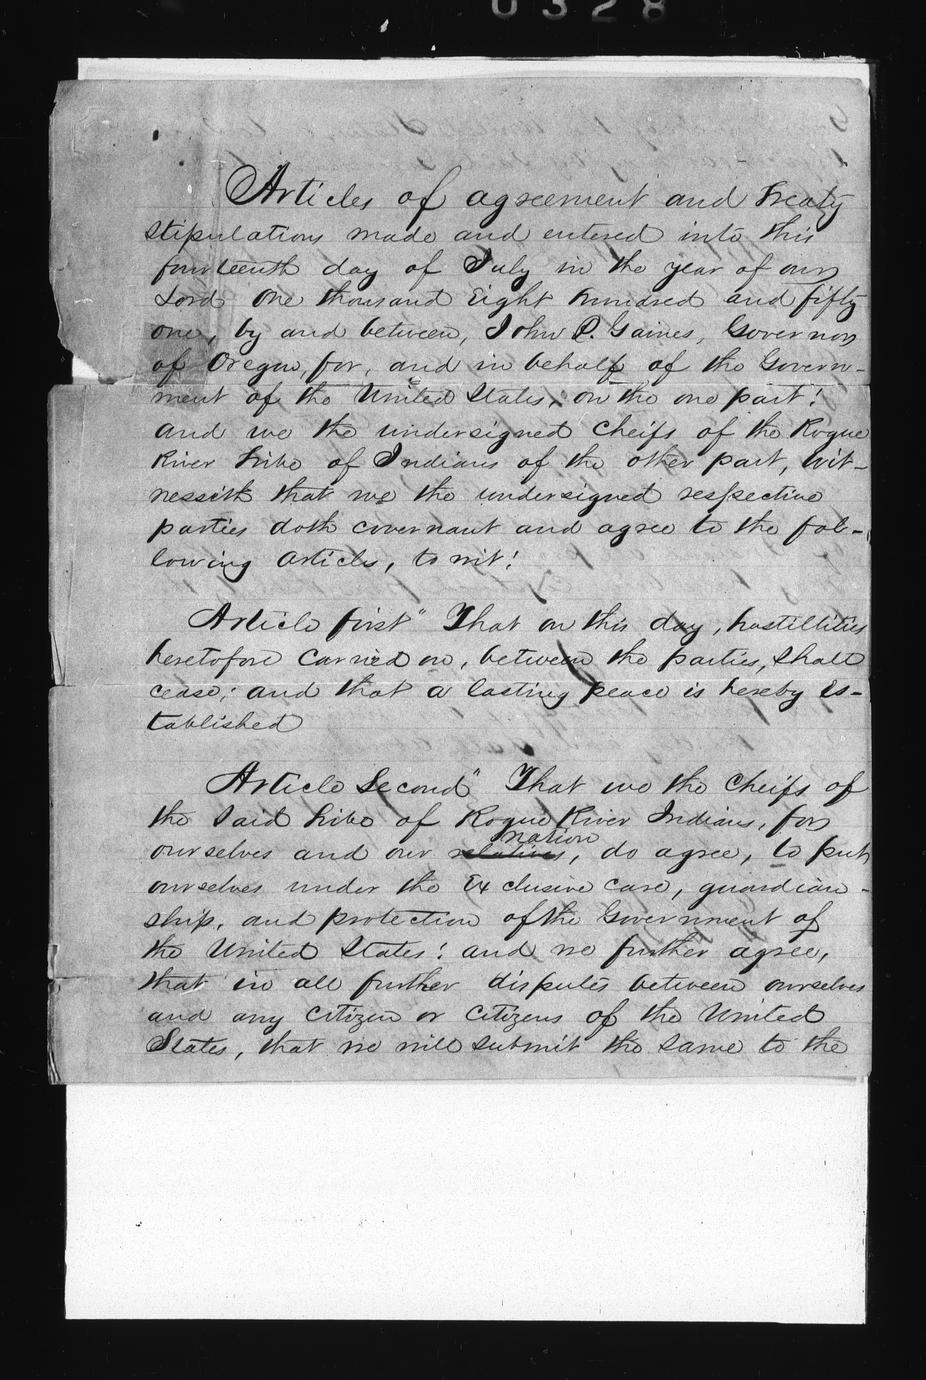 0328
Articles of agreement and Treaty
stipulations made and entered into this
fourteenth day of July in the year of our
Lord One thousand Eight hundred and fifty
one, by and between, John P. Gaines, Governor
of Oregon for, and in behalf of the Govern-
ment of the United States, on the one part!
and we the undersigned Cheifs of the Rogue
River Tribe of Indians of the other part, wit-
nesseth that we the undersigned respective
parties doth covernant and agree to the fol-
lowing articles, to wit!
Article first" That on this day, hostillities
heretofore carried on, between the parties, shall
cease; and that a lasting peace is hereby es-
tablished
Article Second" That we the Cheifs of
the Said Tribe of Rogue River Indians, for
nation
ourselves and our relatives, do agree, to put
ourselves under the Exclusive care, guardian-
ship, and protection of the Government of
the United States! and we further agree,
that in all further disputes between ourselves
and any citizen or citizens of the United
States, that we will submit the same to the